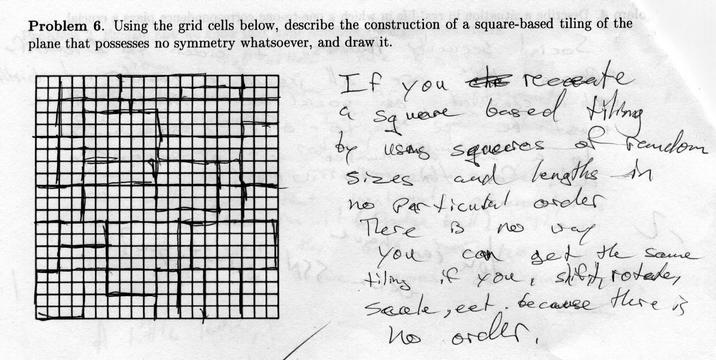 Problem 6. Using the grid cells below, describe the construction of a square-based tiling of the
plane that possesses no symmetry whatsoever, and draw it.
If you the receeate
a square based tiling
by using squares of random
sizes and lengths in
no particular order
There is no way
you can get the same
tiling if you, shift, rotate,
scale, eet. because there is
no order.